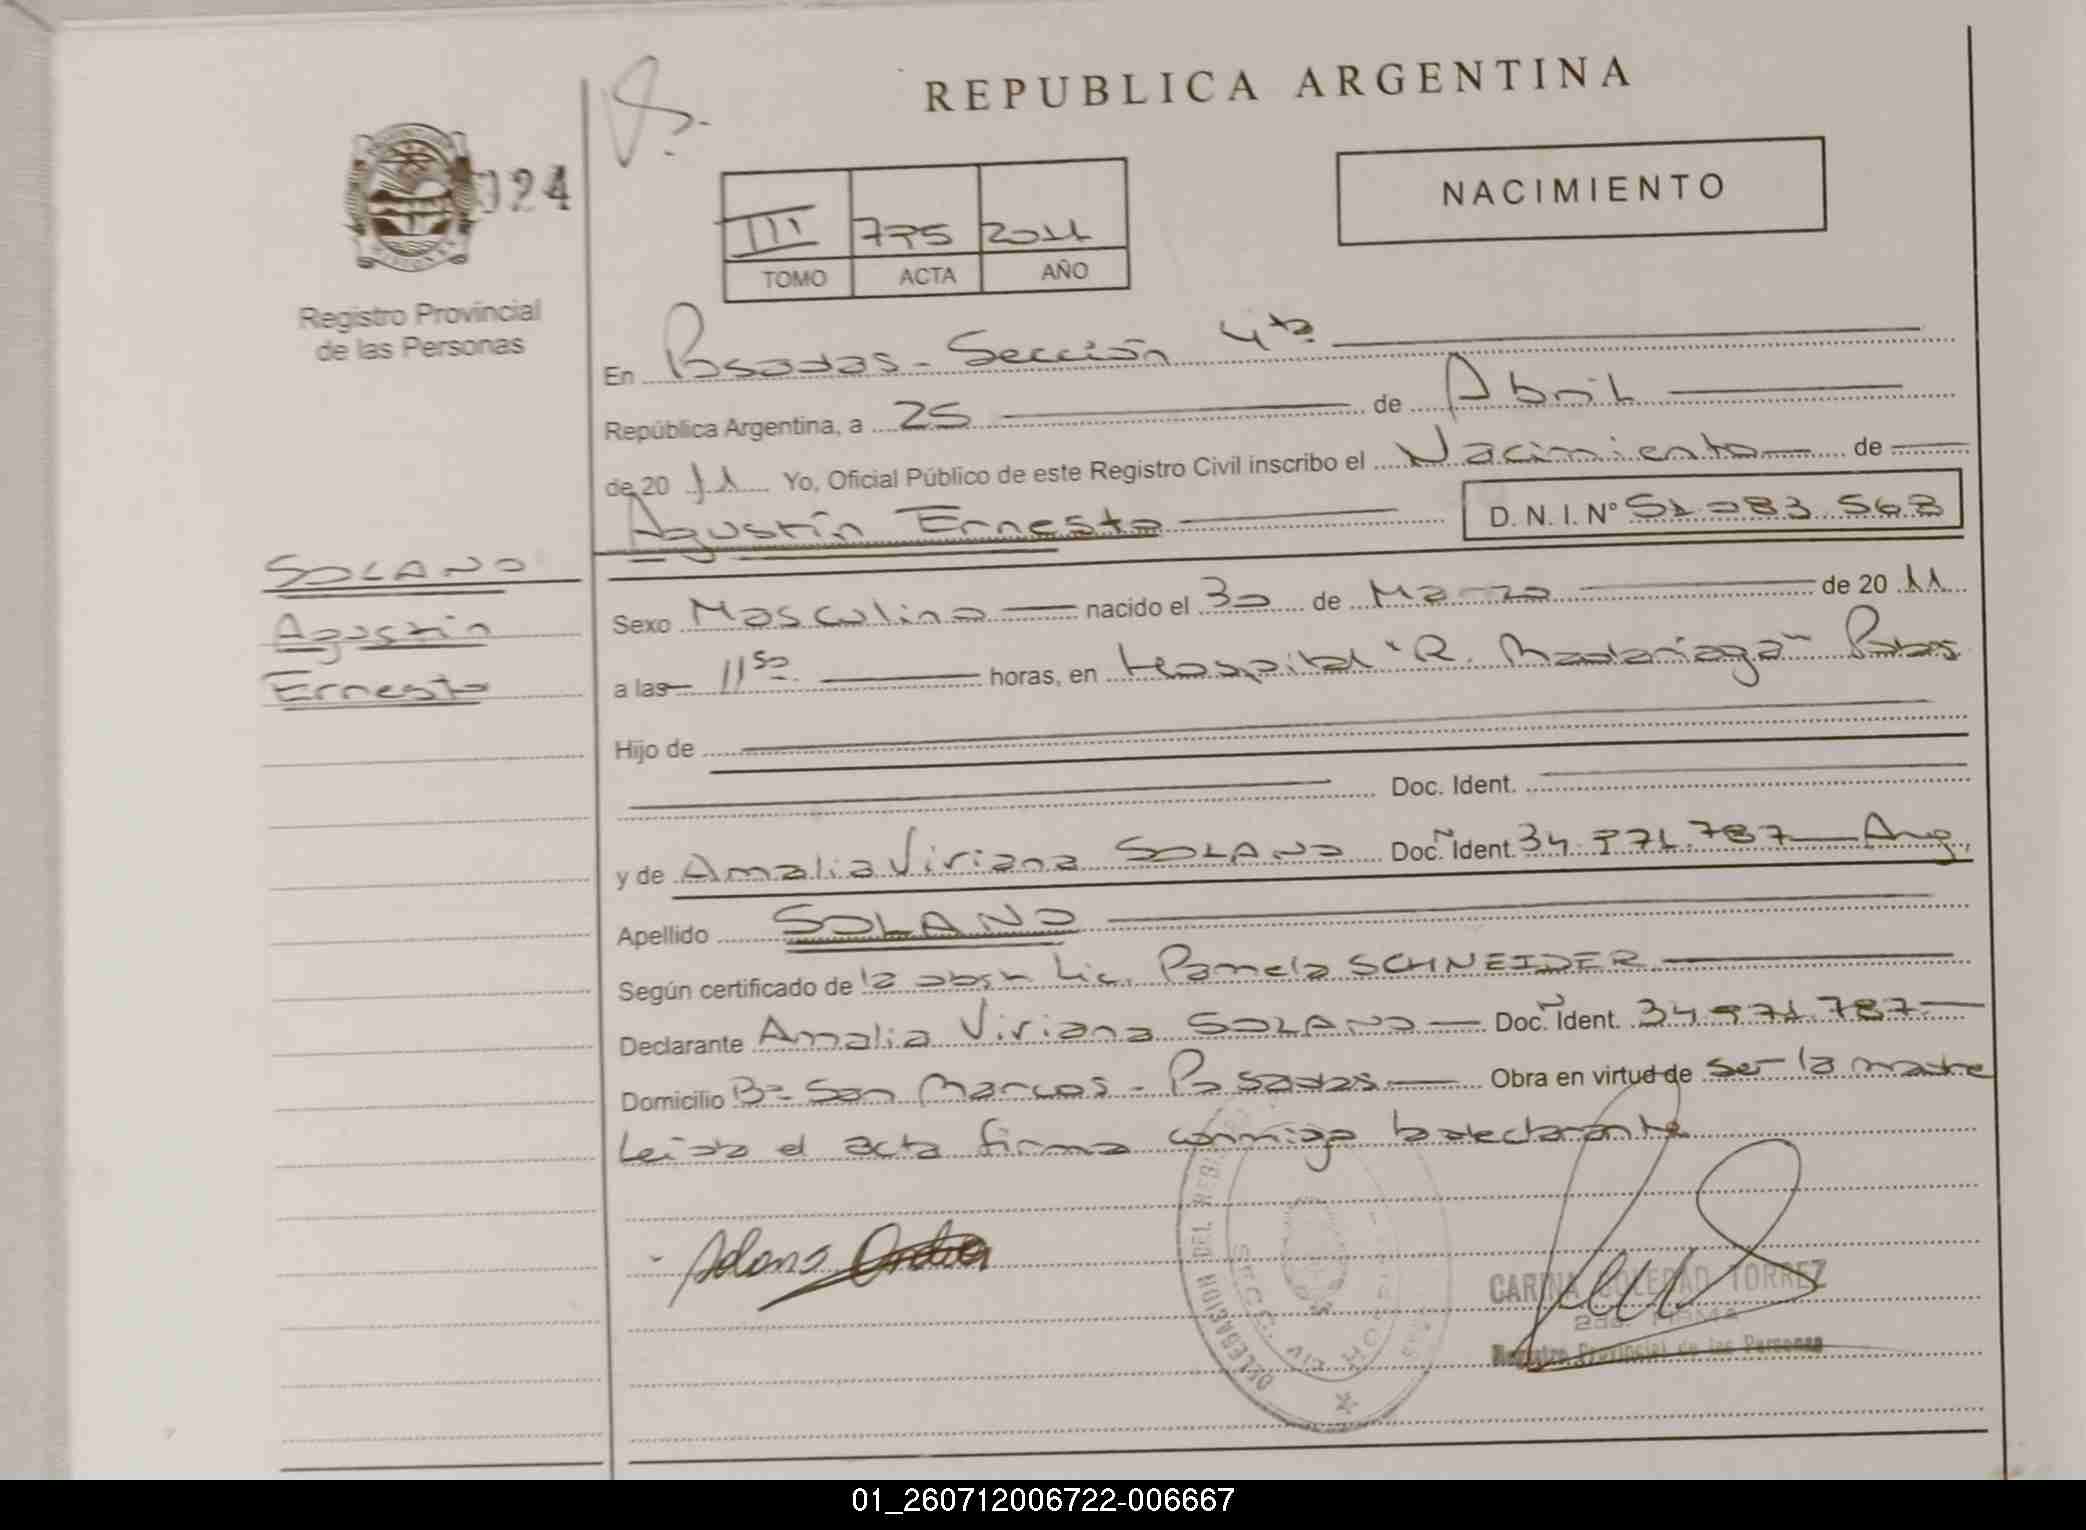 REPUBLICA ARGENTINA
NACIMIENTO
124
III 775 2011
TOMO ACTA AÑO
Registro Provincial
de las Personas
En Posadas - Sección 4ta
República Argentina, a 25 de Abril
de 20 11 Yo, Oficial Público de este Registro Civil inscribo el Nacimiento de
Agustín Ernesto D. N. I. Nº 51 083 563
SOLANO
Agustín
Ernesto
Sexo Masculino nacido el 30 de Marzo de 20 11
a las 11 50 horas, en Hospital "R. Madariaga" Pdas
Hijo de
Doc. Ident.
y de Amalia Viviana SOLANO Doc. Ident. 34.971.787 Arg.
Apellido SOLANO
Según certificado de la obst Lic. Pamela SCHNEIDER
Declarante Amalia Viviana SOLANO Doc. Ident. 34 971.787
Domicilio Bº San Marcos - Posadas Obra en virtud de ser la madre
Leida el acta firma conmigo la declarante
DELEGACION DEL
CARINA SOLEDAD TORREZ
Registro Provincial de las Personas
01_260712006722-006667